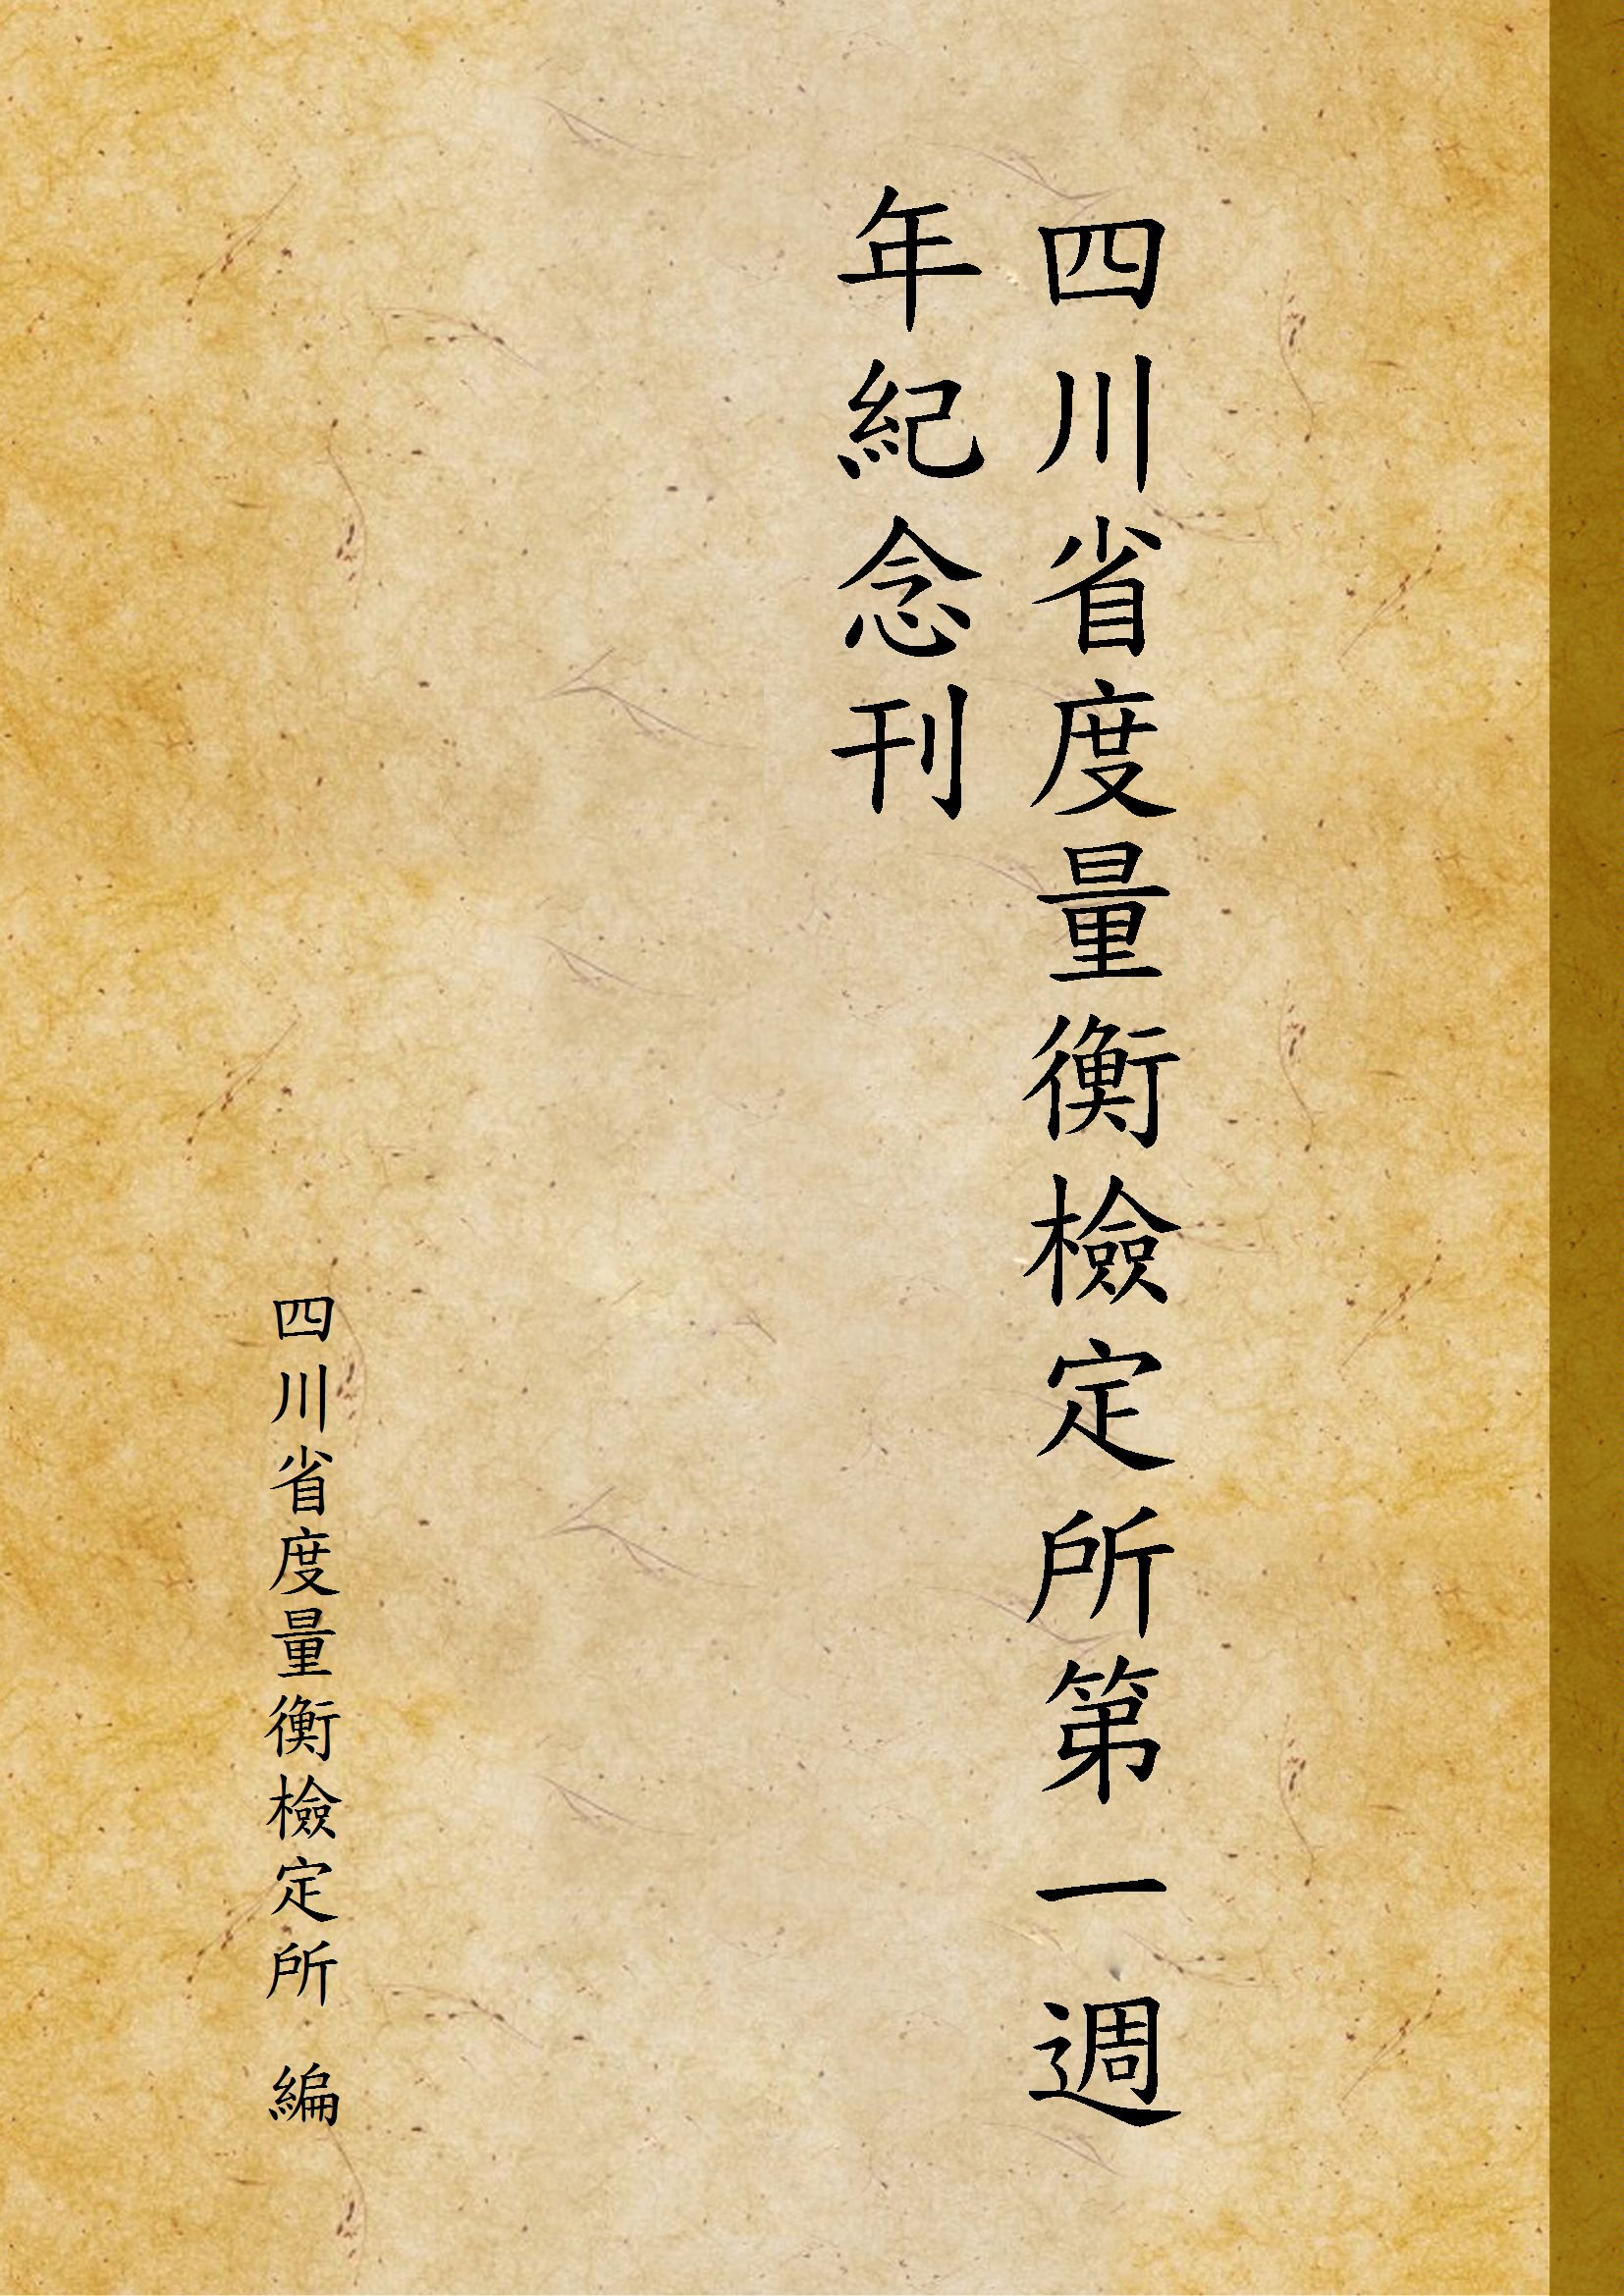 四川省度量衡檢定所第一週
年紀念刊
四川省度量衡檢定所 編